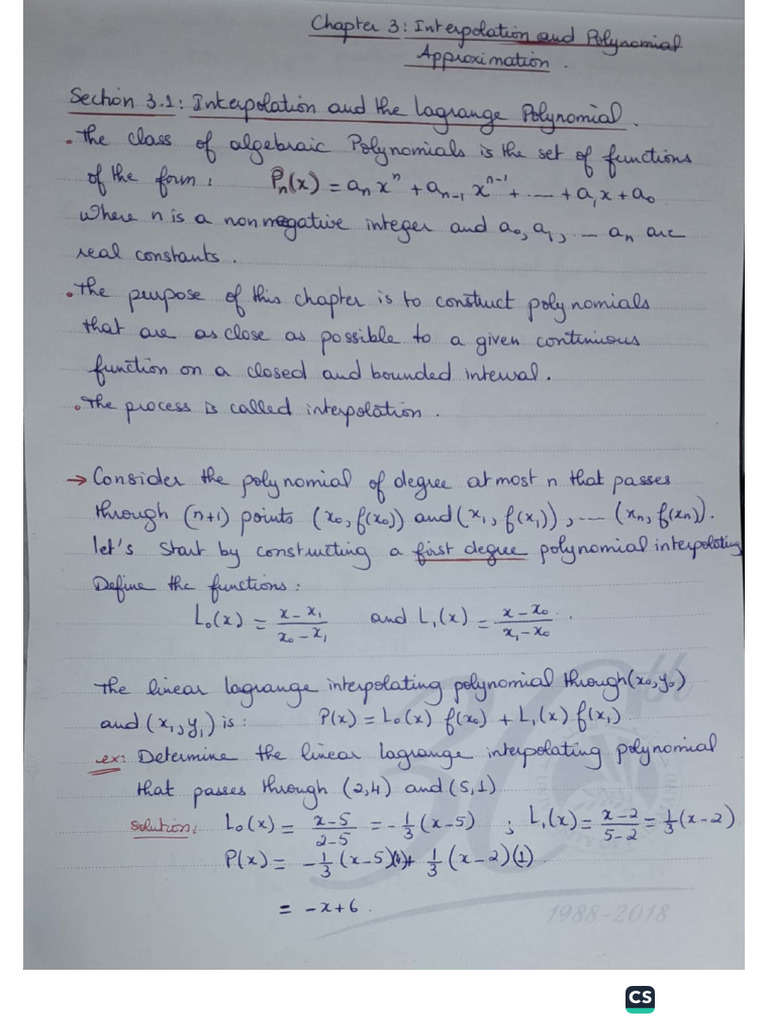 Chapter 3: Interpolation and Polynomial
Approximation.
Section 3.1: Interpolation and the Lagrange Polynomial.
• The class of algebraic Polynomials is the set of functions
of the form: Pₙ(x) = aₙ xⁿ + aₙ₋₁ xⁿ⁻¹ + ... + a₁x + a₀
where n is a nonnegative integer and a₀, a₁, ... aₙ are
real constants.
• The purpose of this chapter is to construct polynomials
that are as close as possible to a given continuous
function on a closed and bounded interval.
• The process is called interpolation.
→ Consider the polynomial of degree at most n that passes
through (n+1) points (x₀, f(x₀)) and (x₁, f(x₁)), ... (xₙ, f(xₙ)).
let's start by constructing a first degree polynomial interpolating
Define the functions:
L₀(x) = (x - x₁)/(x₀ - x₁) and L₁(x) = (x - x₀)/(x₁ - x₀).
The linear lagrange interpolating polynomial through (x₀, y₀)
and (x₁, y₁) is: P(x) = L₀(x) f(x₀) + L₁(x) f(x₁)
ex: Determine the linear lagrange interpolating polynomial
that passes through (2,4) and (5,1)
Solution: L₀(x) = (x-5)/(2-5) = -1/3 (x-5) ; L₁(x) = (x-2)/(5-2) = 1/3 (x-2)
P(x) = -1/3 (x-5)(4) + 1/3 (x-2)(1).
= -x+6.
1988-2018
CS